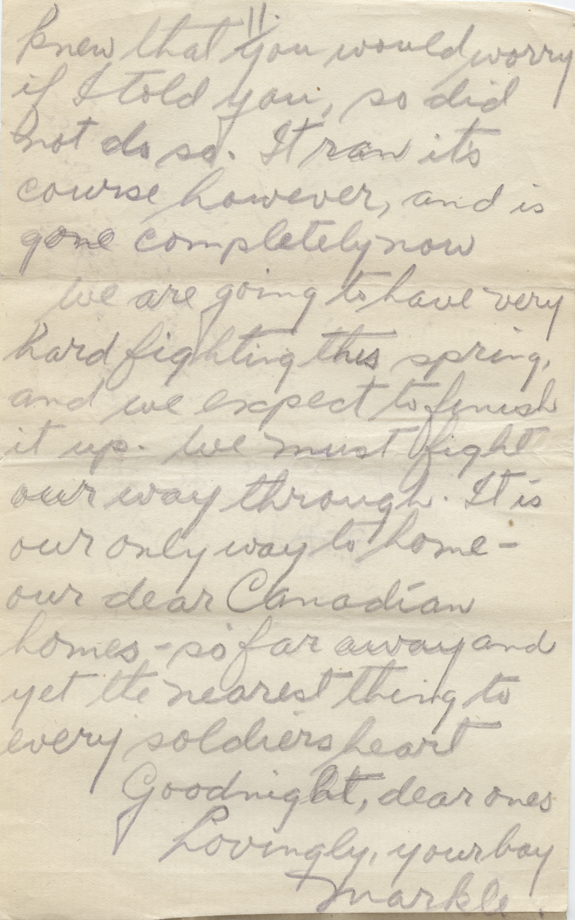 11.
knew that you would worry
if I told you, so did
not do so. It ran it's
course however, and is
gone completely now
We are going to have very
hard fighting this spring,
and we expect to finish
it up. We must fight
our way through. It is
our only way to home –
our dear Canadian
homes – so far away and
yet the nearest thing to
every soldiers heart
Goodnight, dear ones
Lovingly, your boy
Markle.